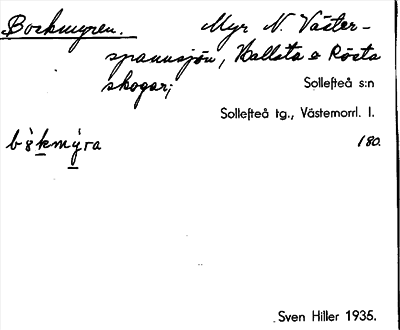 Bockmyren. Myr N. Väster-
spannsjön, Hallsta o Rösta
skogar;
Sollefteå s:n
Sollefteå tg., Västernorrl. l.
180.
Sven Hiller 1935.